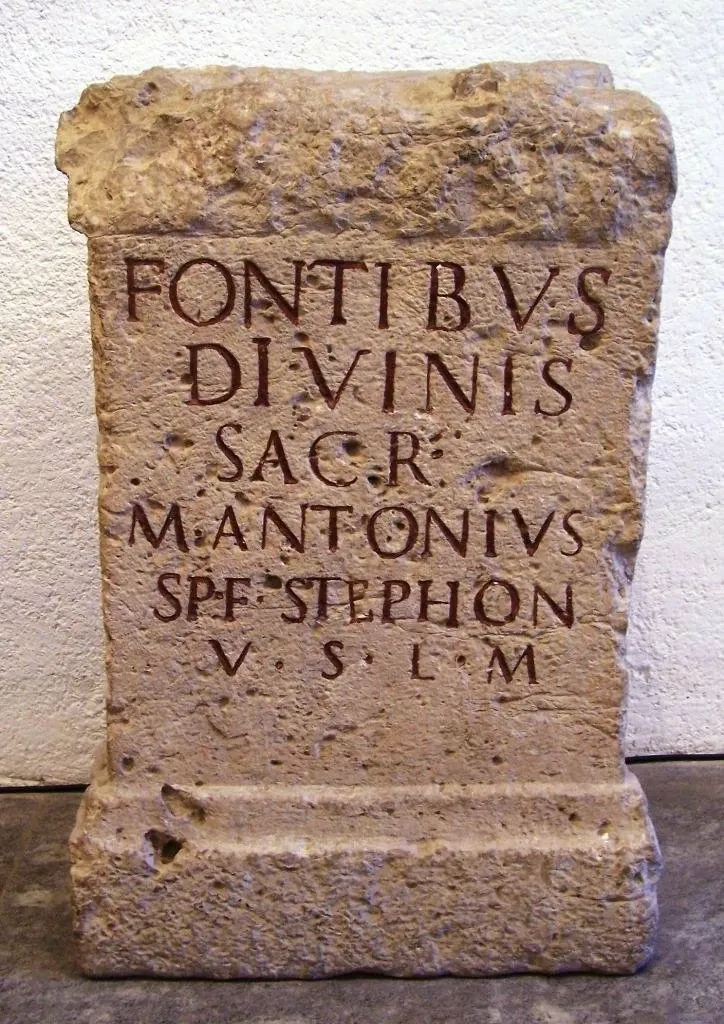 FONTIBVS
DIVINIS
SACR
M·ANTONIVS
SP·F·STEPHON
V·S·L·M